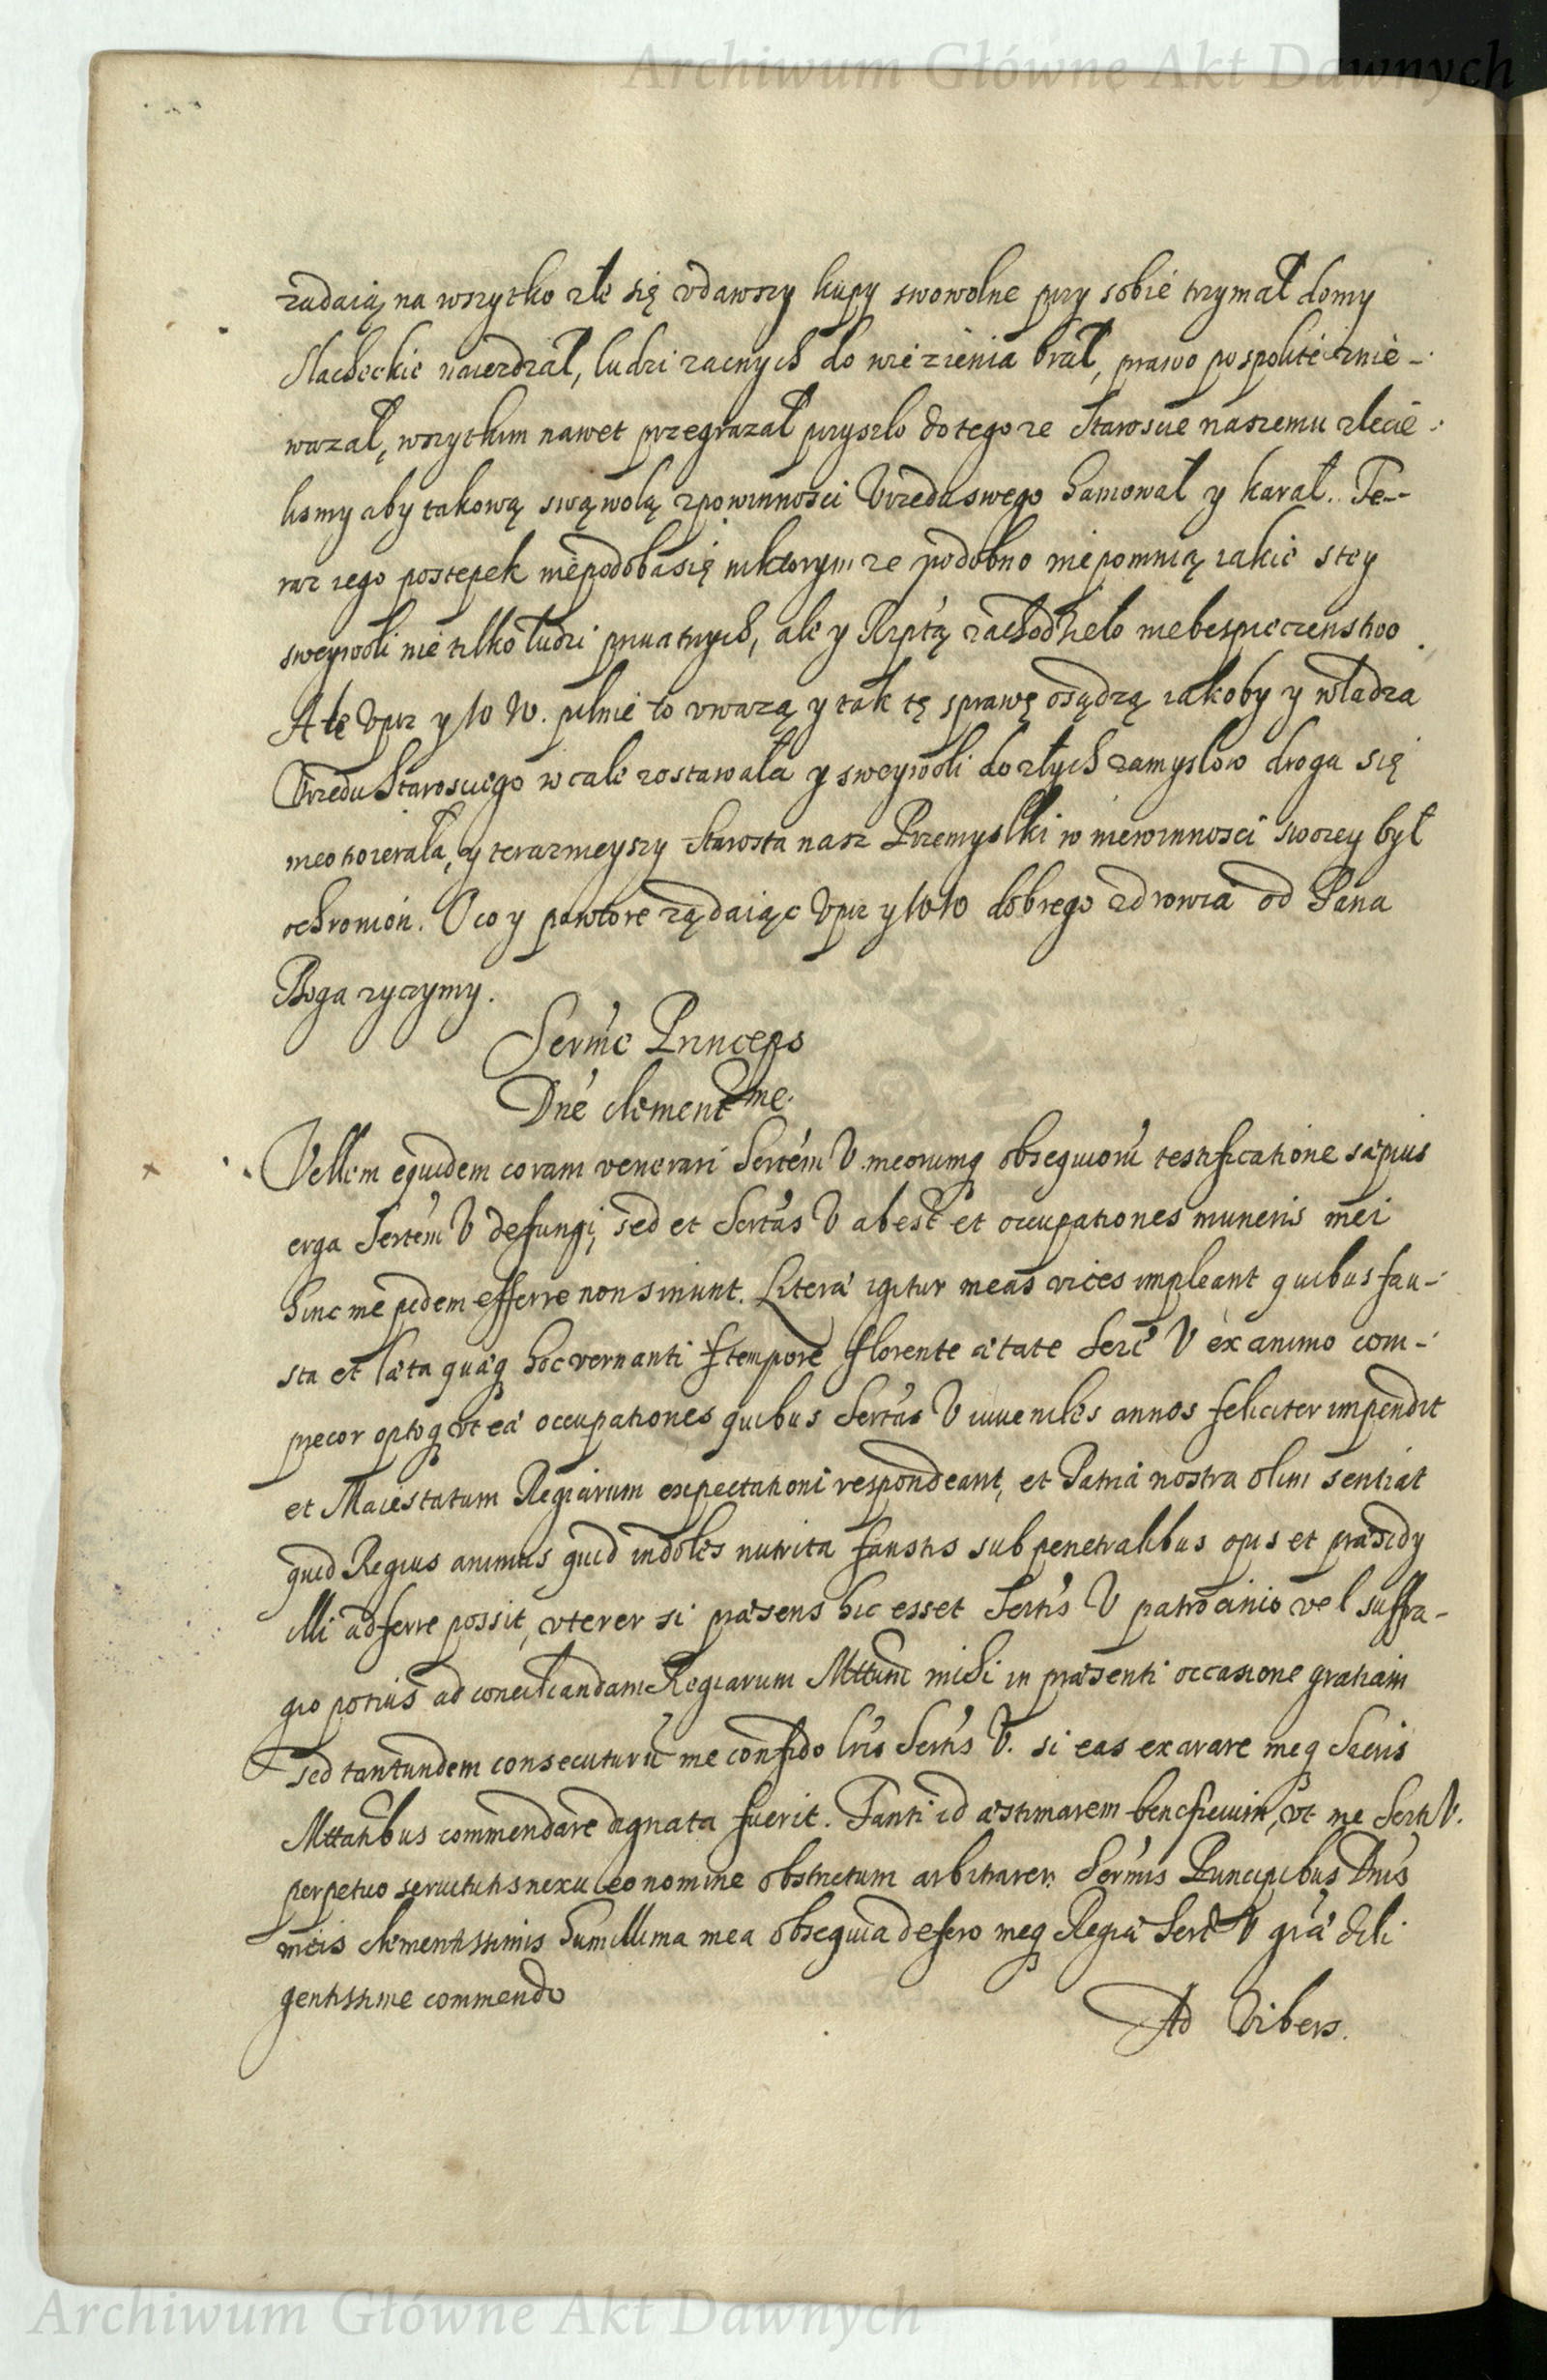 Archiwum Główne Akt Dawnych
zadaią na wszytko złe się vdawszy kupy swowolne przy sobie trzymał domy
Slacheckie naiezdzał, ludzi zacnych do wiezienia brał, prawo pospolite znie-
wazał, wszytkim nawet przegrazał przyszło do tego ze Staroscie naszemu zlecie-
lismy aby takową swąwolą z powinnosci Vrzedu swego hamował y karał. Te-
raz iego postepek niepodoba się niktorym ze podobno niepomnią iakie s tey
sweywoli nie tilko ludzi priuatnych, ale y Rzptą zachodzieło niebespieczenstwo
Ale Vprz y W W. pilnie to vwazą y tak tę sprawę osądzą iakoby y władza
Vrzedu Starosciego w cale zostawała y sweywoli do złych zamysłow droga się
nieotwierała, y teraznieyszy Starosta nasz Przemyslki w niewinnosci swoiey był
ochronion. O co y powtore ządaiąc Vprz y W W dobrego zdrowia od Pana
Boga zyczymy.
Serm̃e Princeps
Dnẽ clement^me.
Vellem equidem coram venerari Sertem̃ V. meorumq obsequiorũ testificatione sæpius
erga Sertem̃ V defungi, sed et Sertas̃ V abest et occupationes muneris mei
hinc me pedem efferre non sinunt. Literæ igitur meas vices impleant quibus fau-
sta et læta quæq hoc vernanti tempore florente ætate Serẽ V ex animo com-
precor optoq vt eæ occupationes quibus Sertas̃ V iuueniles annos feliciter impendit
et Maiestatum Regiarum expectationi respondeant, et Patria nostra olim sentiat
quid Regius animus quid indoles nutrita faustis sub penetralibus opis et præsidy
illi adferre possit, vterer si præsens hic esset Sertis̃ V patrocinio vel suffra-
gio potius ad conciliandam Regiarum Mttum̃ mihi in præsenti occasione gratiam
sed tantundem consecuturũ me confido lris̃ Sertis̃ V. si eas exarare meq Sacris
Mttatibus commendare dignata fuerit. Tanti id æstimarem beneficium, vt me Serti V.
perpetuo seruitutis nexu eo nomine obstrictum arbitrarer. Serm̃is Principibus Dnis̃
meis clementissimis humillima mea obsequia defero meq Regiæ Serẽ V grã dili
gentissime commendo
Ad Vibers.
Archiwum Główne Akt Dawnych